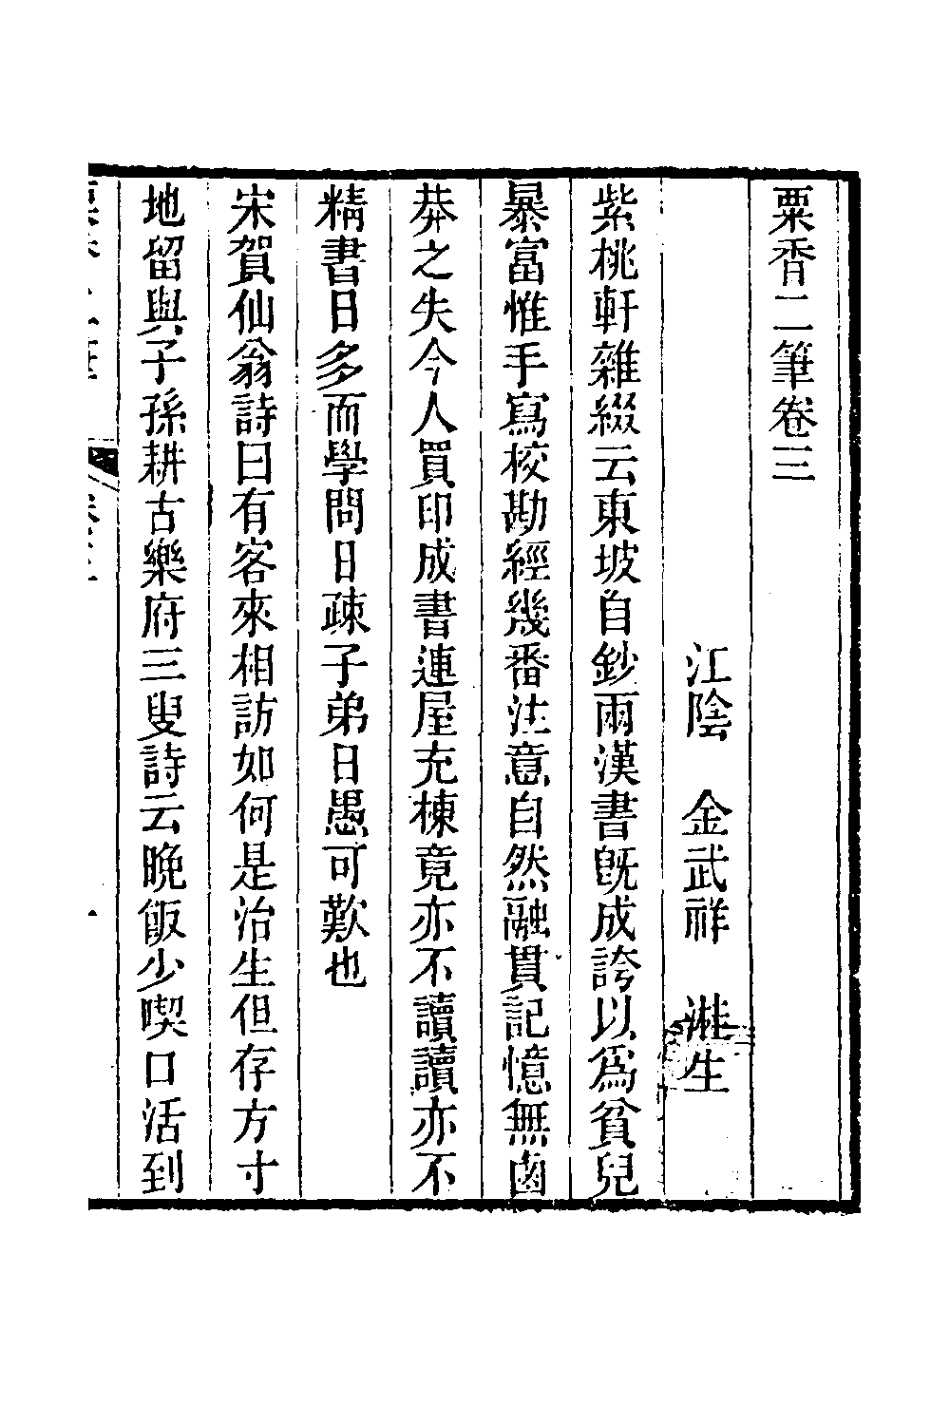 粟香二筆卷三
江陰 金武祥 溎生
紫桃軒雜綴云東坡自鈔兩漢書旣成誇以爲貧兒
暴富惟手寫校勘經幾番注意自然融貫記憶無鹵
莽之失今人買印成書連屋充棟竟亦不讀讀亦不
精書日多而學問日疎子弟日愚可歎也
宋賀仙翁詩曰有客來相訪如何是治生但存方寸
地留與子孫耕古樂府三叟詩云晚飯少喫口活到